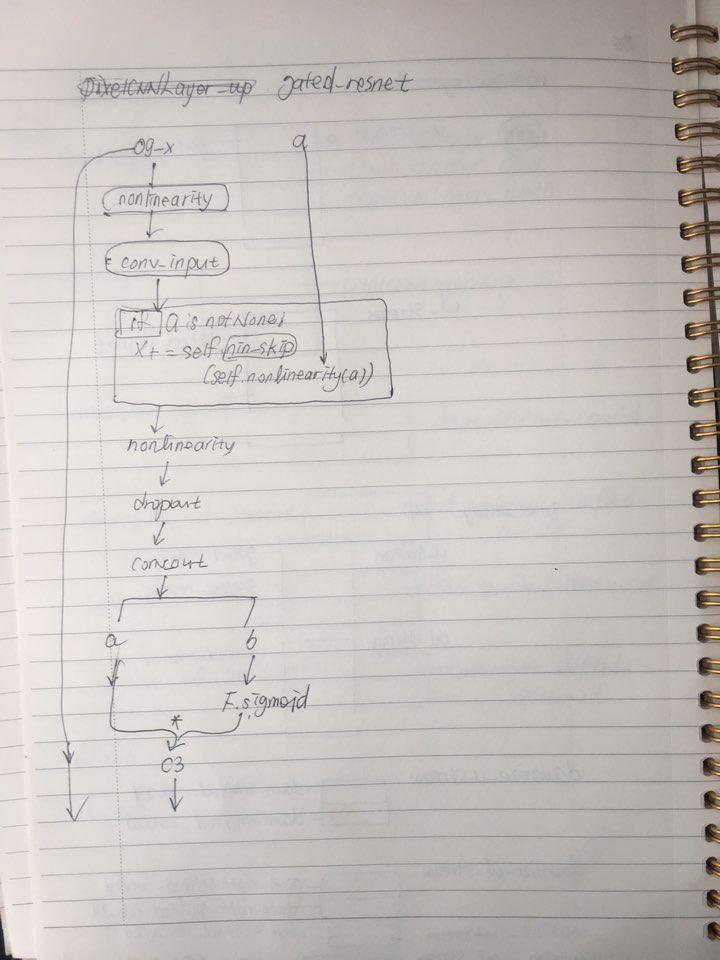 PixelCNNLayer_up gated_resnet
og-x a
nonlinearity
conv_input
if a is not None:
x+ = self.nin_skip
(self.nonlinearity(a))
nonlinearity
dropout
a b
F.sigmoid
*
c3